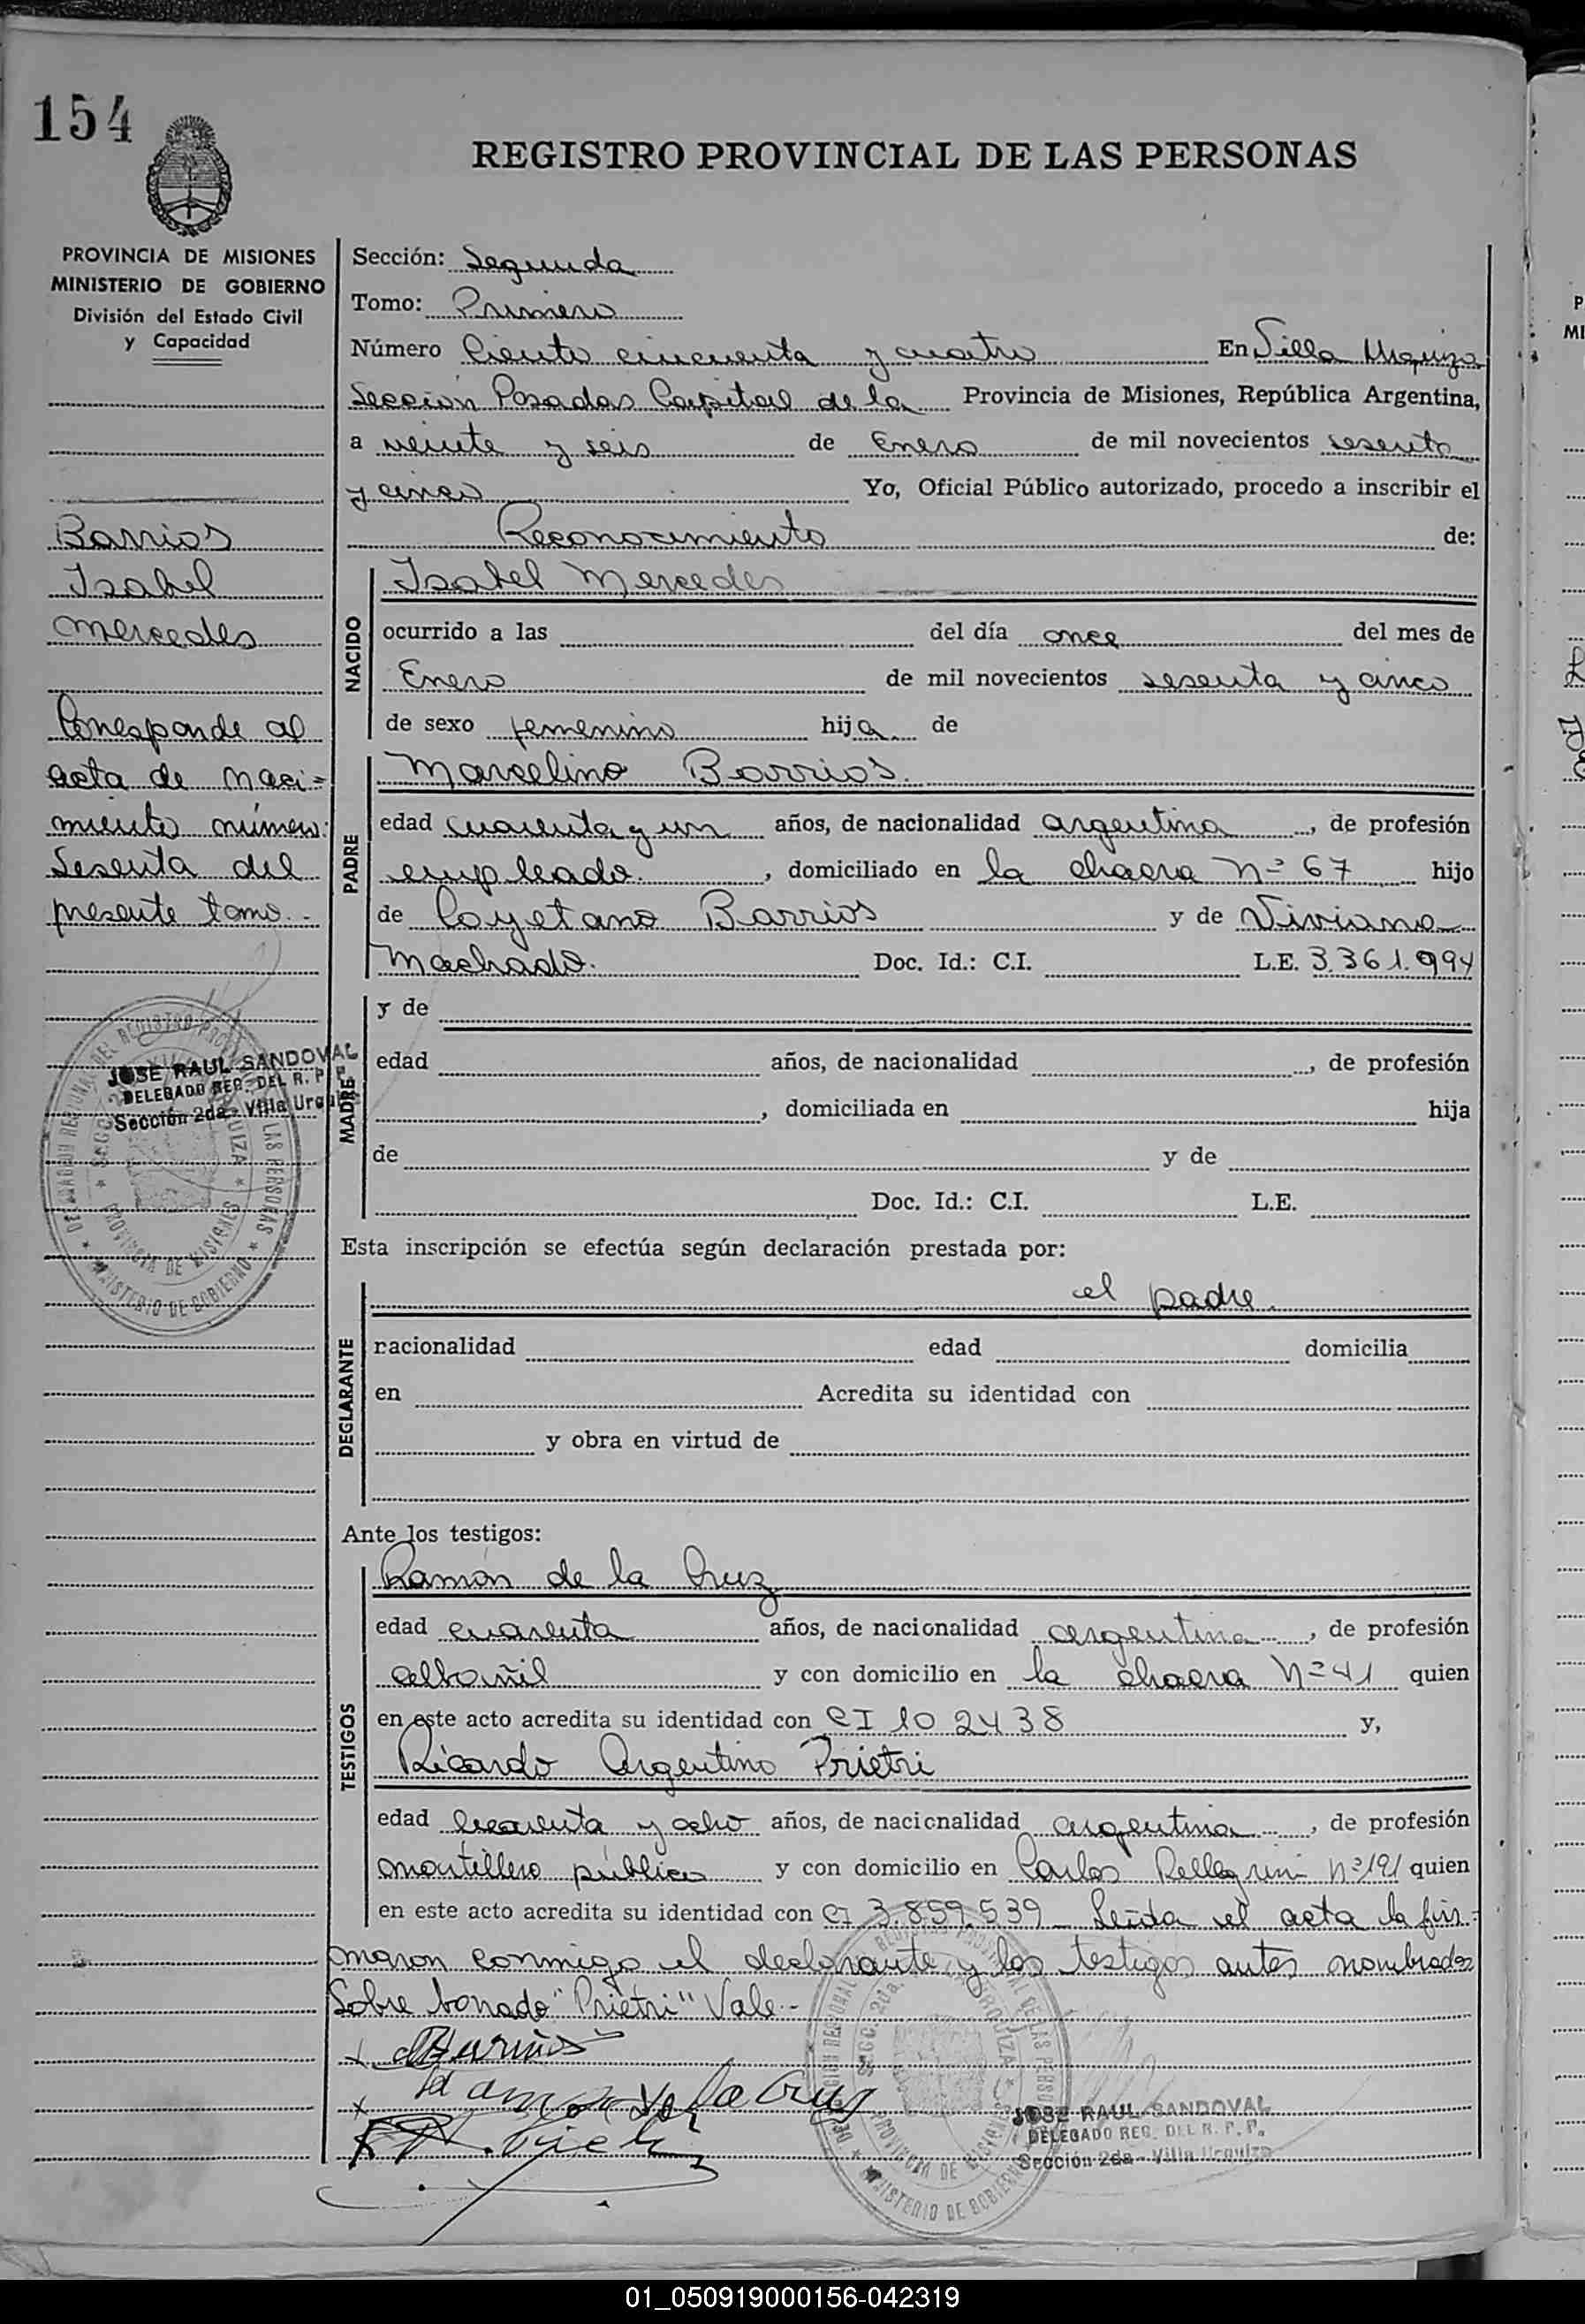 154
REGISTRO PROVINCIAL DE LAS PERSONAS
PROVINCIA DE MISIONES
MINISTERIO DE GOBIERNO
División del Estado Civil
y Capacidad
Barrios
Isabel
Mercedes
Corresponde al
acta de naci=
miento número
Sesenta del
presente tomo.-
JOSE RAUL SANDOVAL
DELEGADO REG. DEL R. P. P.
Sección 2da - Villa Urquiza
DELEGACION REGIONAL DEL REGISTRO PROVINCIAL DE LAS PERSONAS
SECC. 2da. URQUIZA
PROVINCIA DE MISIONES
MINISTERIO DE GOBIERNO
Sección: Segunda
Tomo: Primero
Número Ciento cincuenta y cuatro En Villa Urquiza
Sección Posadas Capital de la Provincia de Misiones, República Argentina,
a veinte y seis de Enero de mil novecientos sesenta
y cinco Yo, Oficial Público autorizado, procedo a inscribir el
Reconocimiento de:
NACIDO
Isabel Mercedes
ocurrido a las del día once del mes de
Enero de mil novecientos sesenta y cinco
de sexo femenino hija de
PADRE
Marcelino Barrios.
edad cuarenta y un años, de nacionalidad argentina, de profesión
empleado., domiciliado en la chacra Nº 67 hijo
de Cayetano Barrios y de Viviana
Machado. Doc. Id.: C.I. L.E. 3.361.994
MADRE
y de
edad años, de nacionalidad , de profesión
, domiciliada en hija
de y de
Doc. Id.: C.I. L.E.
Esta inscripción se efectúa según declaración prestada por:
DECLARANTE
el padre.
nacionalidad edad domicilia
en Acredita su identidad con
y obra en virtud de
Ante los testigos:
TESTIGOS
Ramón de la Cruz
edad cuarenta años, de nacionalidad argentina, de profesión
albañil y con domicilio en la chacra Nº 41 quien
en este acto acredita su identidad con CI 102438 y,
Ricardo Argentino Prietri
edad cuarenta y ocho años, de nacionalidad argentina, de profesión
martillero público y con domicilio en Carlos Pellegrini Nº 191 quien
en este acto acredita su identidad con CI 3.859.539 Leída el acta la fir-
maron conmigo el declarante y los testigos antes nombrados
Sobre borrado "Prietri" Vale.-
x Barrios
x Ramon de la Cruz
DELEGACION REGIONAL DEL REGISTRO PROVINCIAL DE LAS PERSONAS
SECC. 2da. URQUIZA
PROVINCIA DE MISIONES
MINISTERIO DE GOBIERNO
JOSE RAUL SANDOVAL
DELEGADO REG. DEL R. P. P.
Sección 2da - Villa Urquiza
01_050919000156-042319